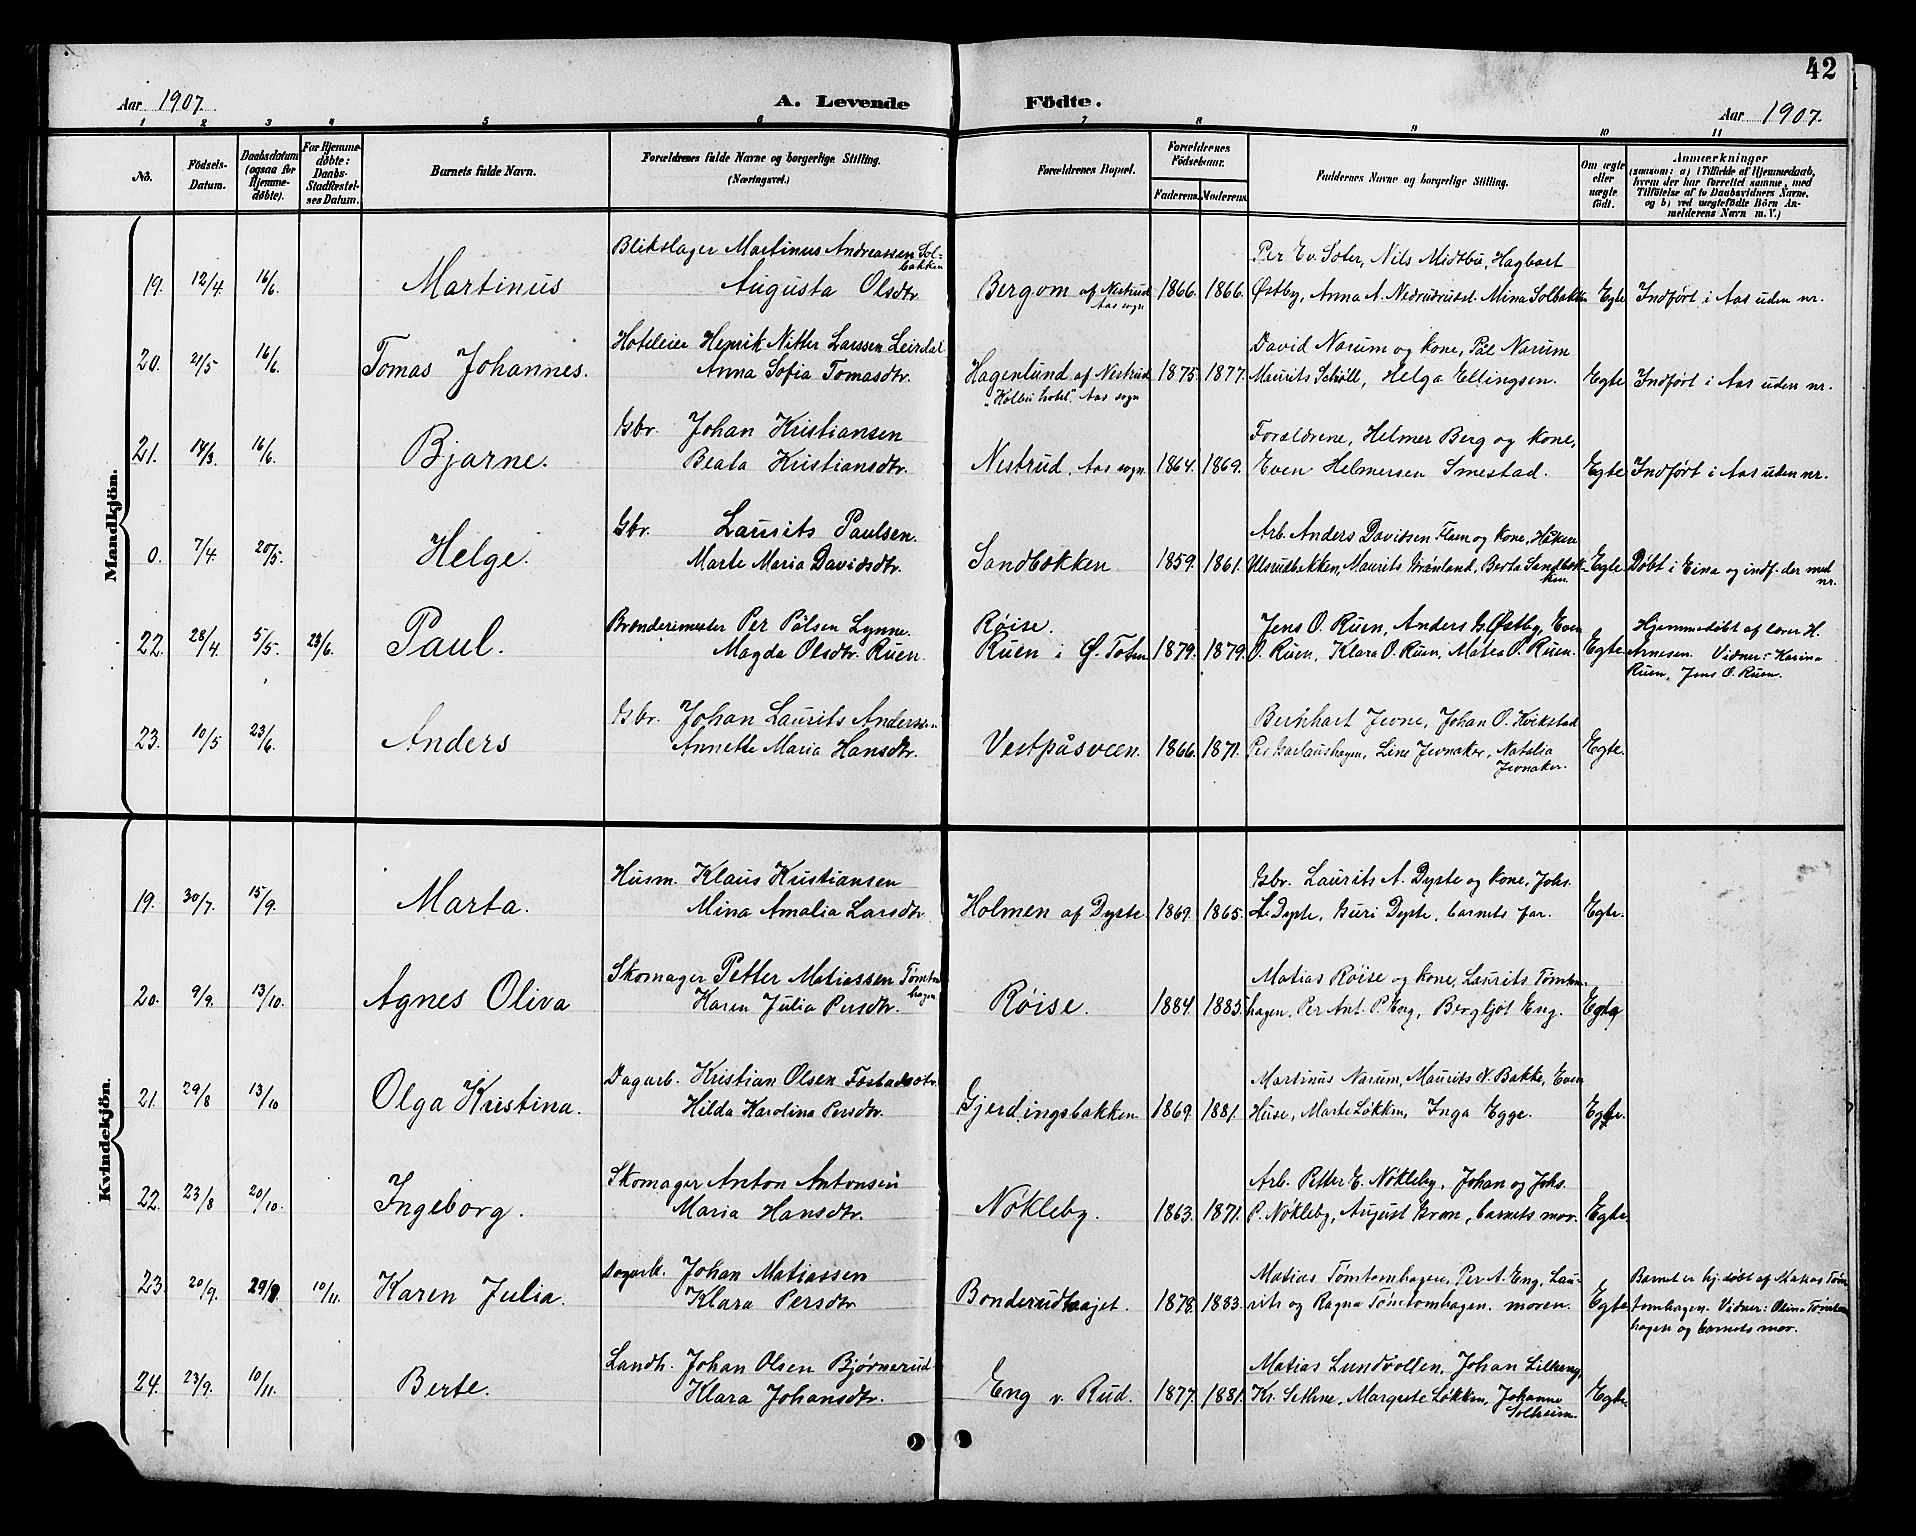 42
Aar 1907.
A. Levende Födte.
Aar 1907.
1 2 3 4 5 6 7 8 9 10 11
No.
Födsels-Datum.
Daabsdatum (ogsaa for Hjemme-døbte).
For Hjemme-døbte: Daabs-Stadfæstel-ses Datum.
Barnets fulde Navn.
Forældrenes fulde Navne og borgerlige Stilling.
(Næringsvei.)
Forældrenes Bopæl.
Forældrenes Födselsaar.
Faderens. Moderens.
Faddernes Navne og borgerlige Stilling.
Om ægte eller uægte født.
Anmærkninger
(saasom: a) i Tilfælde af Hjemmedaab, hvem der har forrettet samme, med Tilføielse af to Daabsvidners Navne, og b) ved uægtefødte Börn An-melderens Navn m. V.)
Mandkjön.
19. 12/4 16/6. Martinus
Blikslager Martinus Andreassen Sol-bakken
Augusta Olsdtr.
Bergom af Nestrud Aas sogn
1866. 1866.
Per Ev. Soter, Nils Midtbu, Hagbart
Østby, Anna A. Mina Solbakken
Egte Indført i Aas uden nr.
20. 21/5 16/6. Tomas Johannes.
Hoteleier Henrik Nitter Larssen Leirdal
Anna Sofia Tomasdtr.
Hagenlund af Nestrud
"Kolbu hotel". Aas sogn
1875. 1877.
David Narum og kone, Pål Narum
Maurits Schøll, Helga Ellingsen.
Egte Indført i Aas uden nr.
21. 14/3. 16/6. Bjarne.
Gbr. Johan Kristiansen
Beata Kristiansdtr.
Nestrud, Aas sogn
1864. 1869.
Forældrene, Helmer Berg og kone,
Even Helmersen Smestad.
Egte Indført i Aas uden nr.
0. 7/4. 20/5. Helge.
Gbr. Laurits Paulsen.
Marte Maria Davidsdtr.
Sandbakken
1859. 1861.
Arb. Anders Davidsen Flem og kone, Håken
Ulsrudbakken, Maurits Grønland, Berta Sandbak-ken.
Egte Døbt i Eina og indf. der med nr.
22. 28/4. 5/5. 23/6. Paul.
Brønderimester Per Pålsen Lynne.
Magda Olsdtr. Ruen.
Røise.
Ruen i Ø. Toten
1879. 1879.
Jens O. Ruen, Anders G. Østby, Even
O. Ruen, Klara O. Ruen, Matea O. Ruen.
Egte
Hjemmedøbt af lærer H.
Arnesen. Vidner: Karina
Ruen, Jens O. Ruen.
23. 10/5 23/6. Anders
Gbr. Johan Laurits Anderssen
Annette Maria Hansdtr.
Vestpåsveen.
1866. 1871.
Bernhart Jevne, Johan O. Kvikstad
Per Karlaushagen, Line Jevnaker, Natalia
Jevnaker.
Egte.
Kvindekjön.
19. 30/7. 15/9. Marta.
Husm. Klaus Kristiansen
Mina Amalia Larsdtr.
Holmen af Dyste.
1869. 1865.
Gbr. Laurits A. Dyste og kone, Johs.
A. Dyste, Guri Dyste, barnets far.
Egte.
20. 9/9. 13/10. Agnes Oliva
Skomager Petter Matiassen Tømtom-hagen
Karen Julia Persdtr.
Røise.
1884. 1885.
Matias Røise og kone, Laurits Tømtom-
hagen, Per Ant. P. Eng, Bergljot Eng.
Egte
21. 29/8 13/10 Olga Kristina.
Dagarb. Kristian Olsen Fostad
Hilda Karolina Persdtr.
Gjerdingsbakken
1869. 1881.
Martinus Narum, Maurits N. Bakke, Even
Huse, Marte Løkken, Inga Egge.
Egte.
22. 23/8 20/10. Ingeborg.
Skomager Anton Antonsen
Maria Hansdtr.
Nøkleby.
1863. 1871.
Arb. Petter E. Nøkleby, Johan og Johs.
P. Nøkleby, August Grøn, barnets mor.
Egte.
23. 20/9. 29/9 10/11. Karen Julia.
Dagarb. Johan Matiassen
Klara Persdtr.
Bonderudhaajet.
1878. 1883.
Matias Tømtomhagen, Per A. Eng, Lau-
rits og Ragna Tømtomhagen. moren.
Egte
Barnet er hj. døbt af Matias Tøm-
tomhagen. Vidner: Olina Tømtom
hagen og barnets mor.
24. 23/9. 10/11. Berte.
Landh. Johan Olsen Bjørnerud
Klara Johansdtr.
Eng v. Rud.
1877. 1881.
Matias Lundvollen, Johan Lilleeng,
Kr. Sethne, Margrete Løkken, Johanne
Solheim.
Egte.